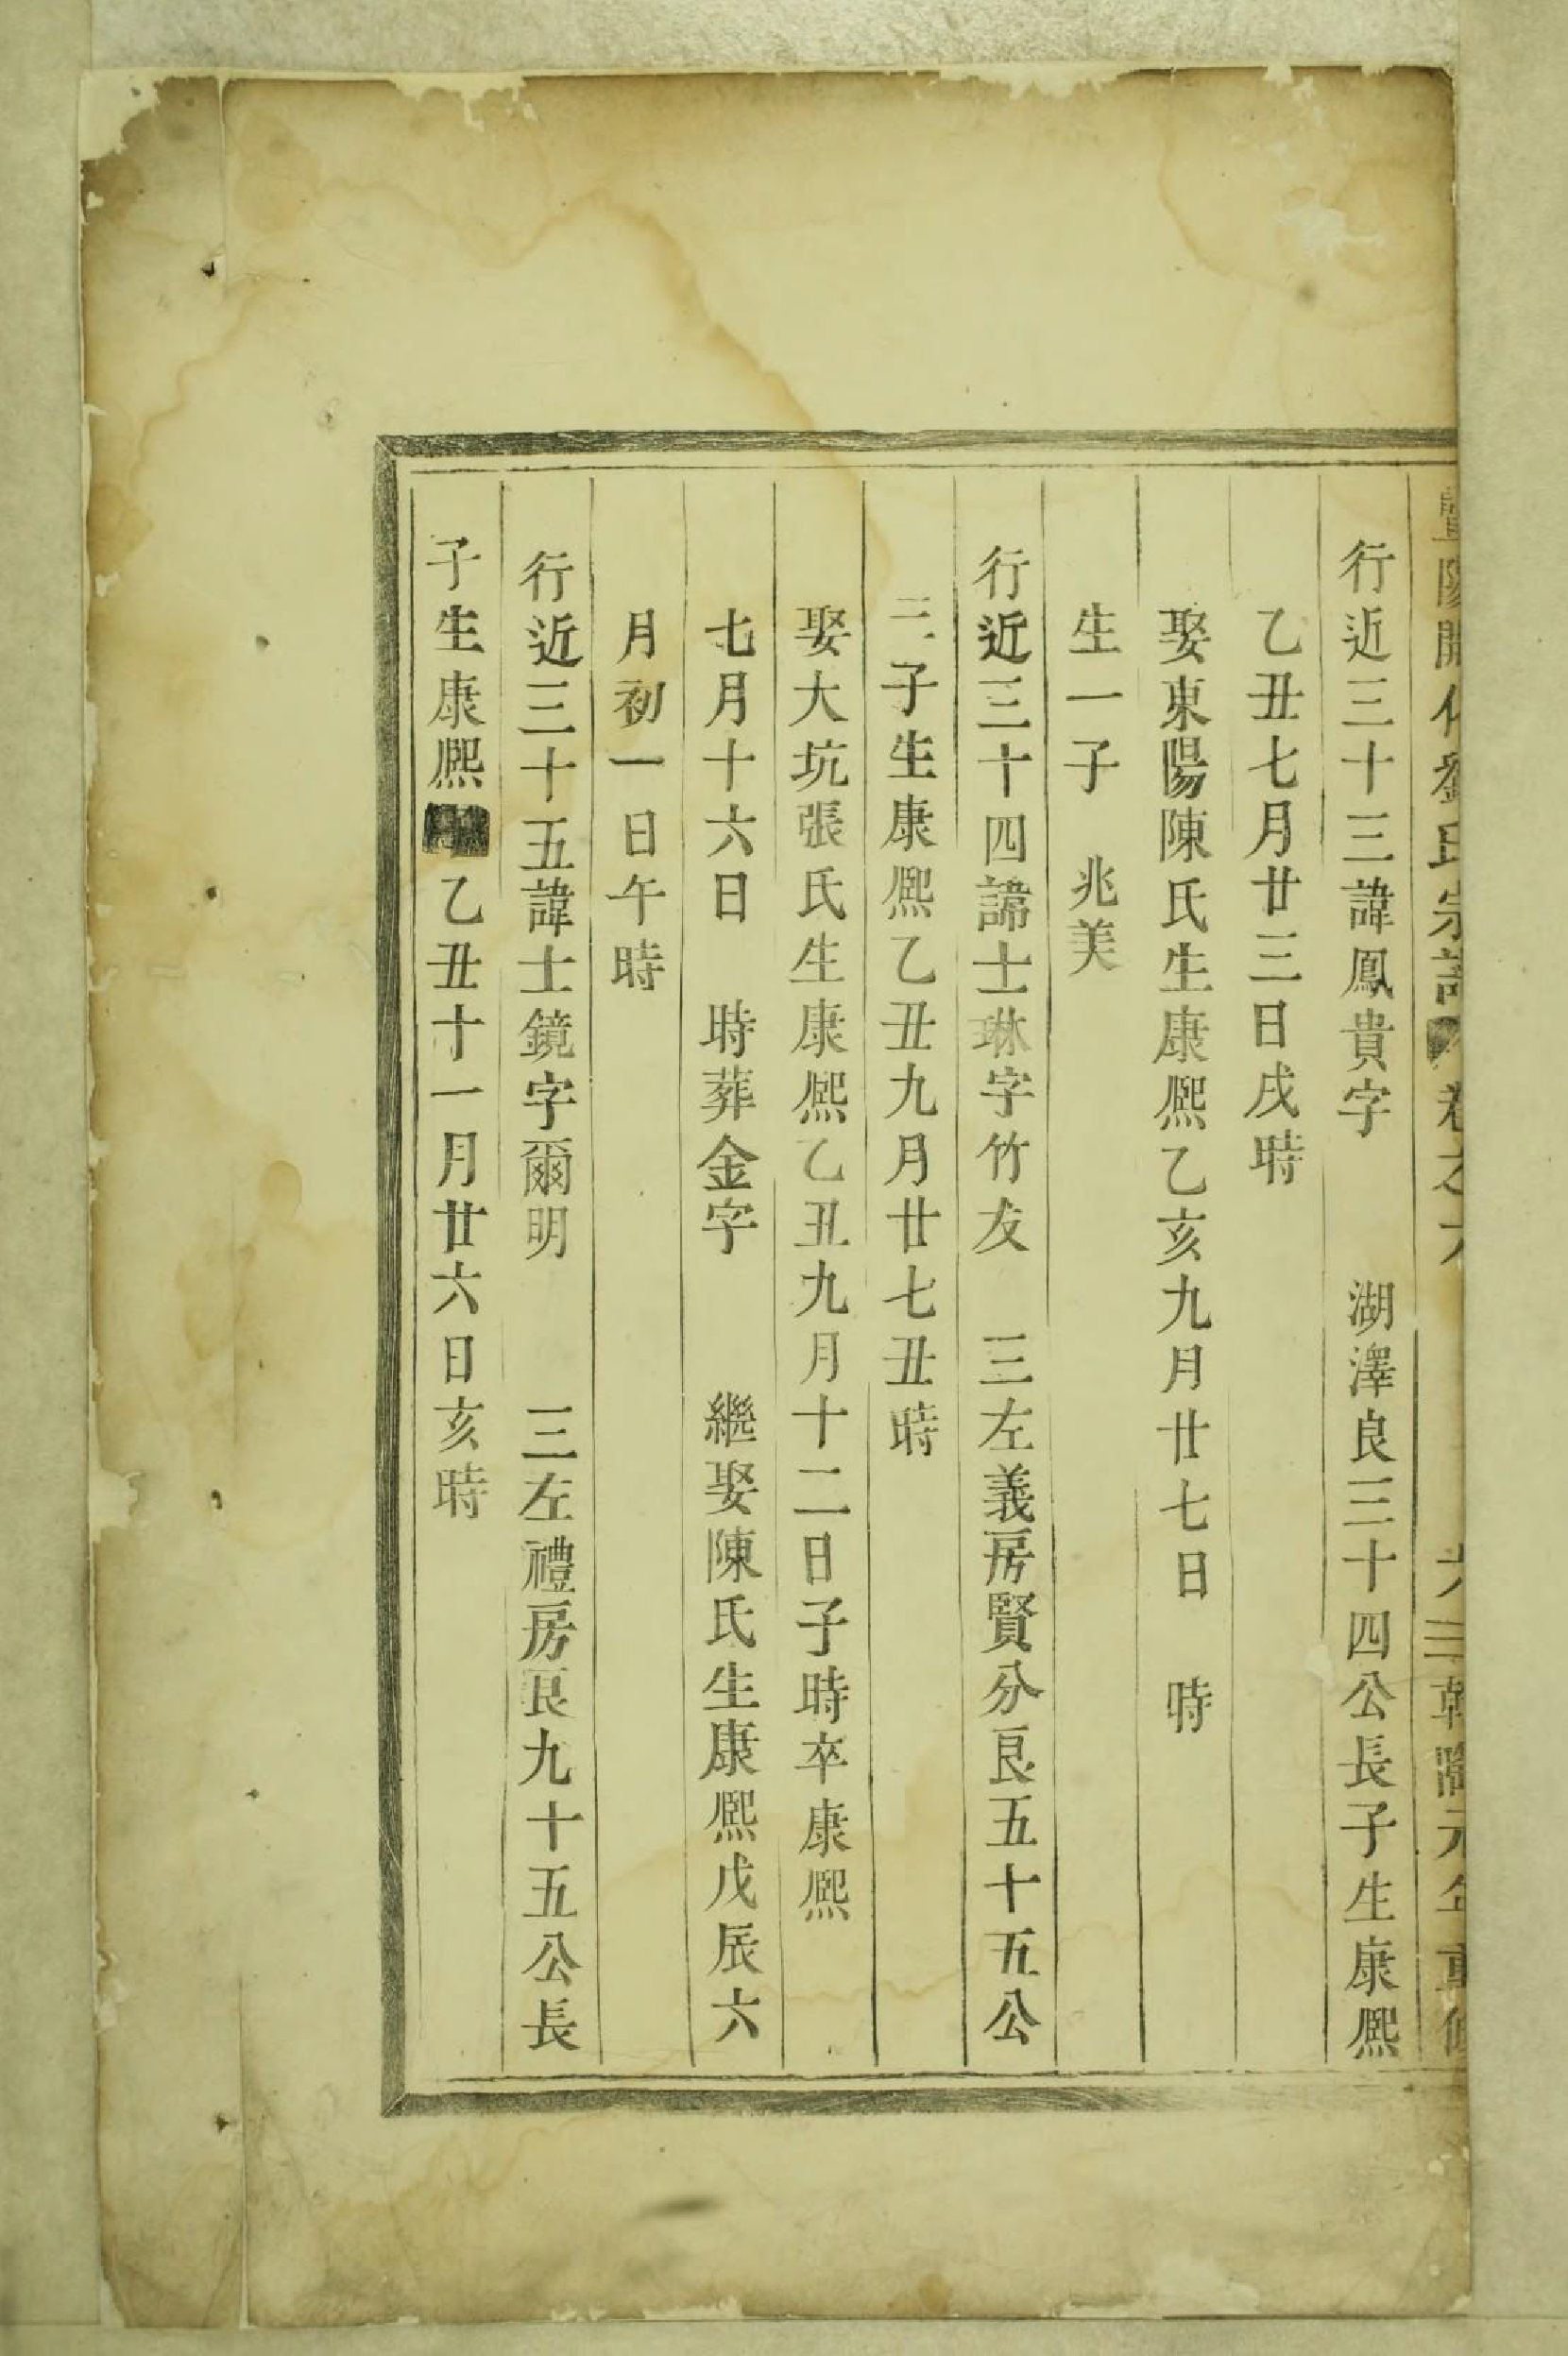 暨陽開化劉氏宗譜 卷之六 六三 乾隆元年重修
行近三十三諱鳳貴字 湖澤良三十四公長子生康熙
乙丑七月廿三日戌時
娶東陽陳氏生康熙乙亥九月廿七日 時
生一子 兆美
行近三十四諱士琳字竹友 三左義房賢分良五十五公
二子生康熙乙丑九月廿七丑時
娶大坑張氏生康熙乙丑九月十二日子時卒康熙
七月十六日 時葬金字 繼娶陳氏生康熙戊辰六
月初一日午時
行近三十五諱士鏡字爾明 三左禮房良九十五公長
子生康熙乙丑十一月廿六日亥時